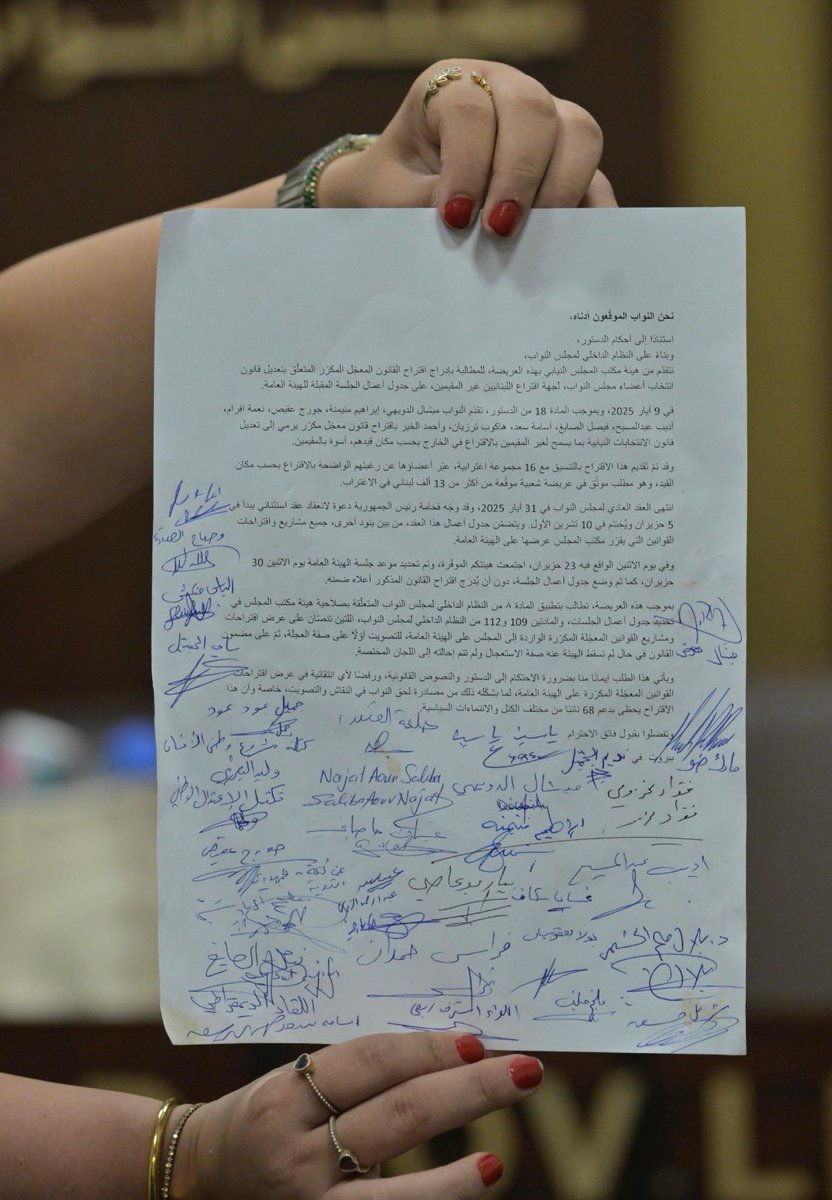 نحن النواب الموقّعون أدناه،
استنادًا إلى أحكام الدستور،
وبناءً على النظام الداخلي لمجلس النواب،
نتقدّم من هيئة مكتب المجلس النيابي بهذه العريضة، للمطالبة بإدراج اقتراح القانون المعجّل المكرّر المتعلّق بتعديل قانون
انتخاب أعضاء مجلس النواب، لجهة اقتراع اللبنانيين غير المقيمين، على جدول أعمال الجلسة المقبلة للهيئة العامة.
في 9 أيار 2025، وبموجب المادة 18 من الدستور، تقدّم النواب ميشال الدويهي، إبراهيم منيمنة، جورج عقيص، نعمة افرام،
أديب عبدالمسيح، فيصل الصايغ، أسامة سعد، هاكوب ترزيان، وأحمد الخير باقتراح قانون معجّل مكرّر يرمي إلى تعديل
قانون الانتخابات النيابية بما يسمح لغير المقيمين بالاقتراع في الخارج بحسب مكان قيدهم، أسوة بالمقيمين.
وقد تمّ تقديم هذا الاقتراح بالتنسيق مع 16 مجموعة اغترابية، عبّر أعضاؤها عن رغبتهم الواضحة بالاقتراع بحسب مكان
القيد، وهو مطلب موثّق في عريضة شعبية موقّعة من أكثر من 13 ألف لبناني في الاغتراب.
انتهى العقد العادي لمجلس النواب في 31 أيار 2025، وقد وجّه فخامة رئيس الجمهورية دعوة لانعقاد عقد استثنائي يبدأ في
5 حزيران ويُختتم في 10 تشرين الأول. ويتضمّن جدول أعمال هذا العقد، من بين بنود أخرى، جميع مشاريع واقتراحات
القوانين التي يقرّر مكتب المجلس عرضها على الهيئة العامة.
وفي يوم الاثنين الواقع فيه 23 حزيران، اجتمعت هيئتكم الموقّرة، وتم تحديد موعد جلسة الهيئة العامة يوم الاثنين 30
حزيران، كما تم وضع جدول أعمال الجلسة، دون أن يُدرَج اقتراح القانون المذكور أعلاه ضمنه.
بموجب هذه العريضة، نطالب بتطبيق المادة ٨ من النظام الداخلي لمجلس النواب المتعلّقة بصلاحية هيئة مكتب المجلس في
تحديد جدول أعمال الجلسات، والمادتين 109 و112 من النظام الداخلي لمجلس النواب، اللتين تنصّان على عرض اقتراحات
ومشاريع القوانين المعجّلة المكرّرة الواردة إلى المجلس على الهيئة العامة، للتصويت أوّلًا على صفة العجلة، ثمّ على مضمون
القانون في حال لم تسقط الهيئة عنه صفة الاستعجال ولم تتم إحالته إلى اللجان المختصة.
ويأتي هذا الطلب إيمانًا منا بضرورة الاحتكام إلى الدستور والنصوص القانونية، ورفضًا لأي انتقائية في عرض اقتراحات
القوانين المعجّلة المكرّرة على الهيئة العامة، لما يشكّله ذلك من مصادرة لحق النواب في النقاش والتصويت، خاصة وأن هذا
الاقتراح يحظى بدعم 68 نائبًا من مختلف الكتل والانتماءات السياسية.
وتفضلوا بقبول فائق الاحترام
بيروت في
سامي الجميّل
جميل عبود عبود
ياسين ياسين
نديم الجميّل
مارك ضو
Najat Aoun Saliba
Saliba Aoun Najat
ميشال الدويهي
فؤاد مخزومي
ابراهيم منيمنة
جورج عقيص
اديب عبدالمسيح
غسان سكاف
فراس حمدان
بولا يعقوبيان
فيصل الصايغ
اللقاء الديمقراطي
اسامة سعد